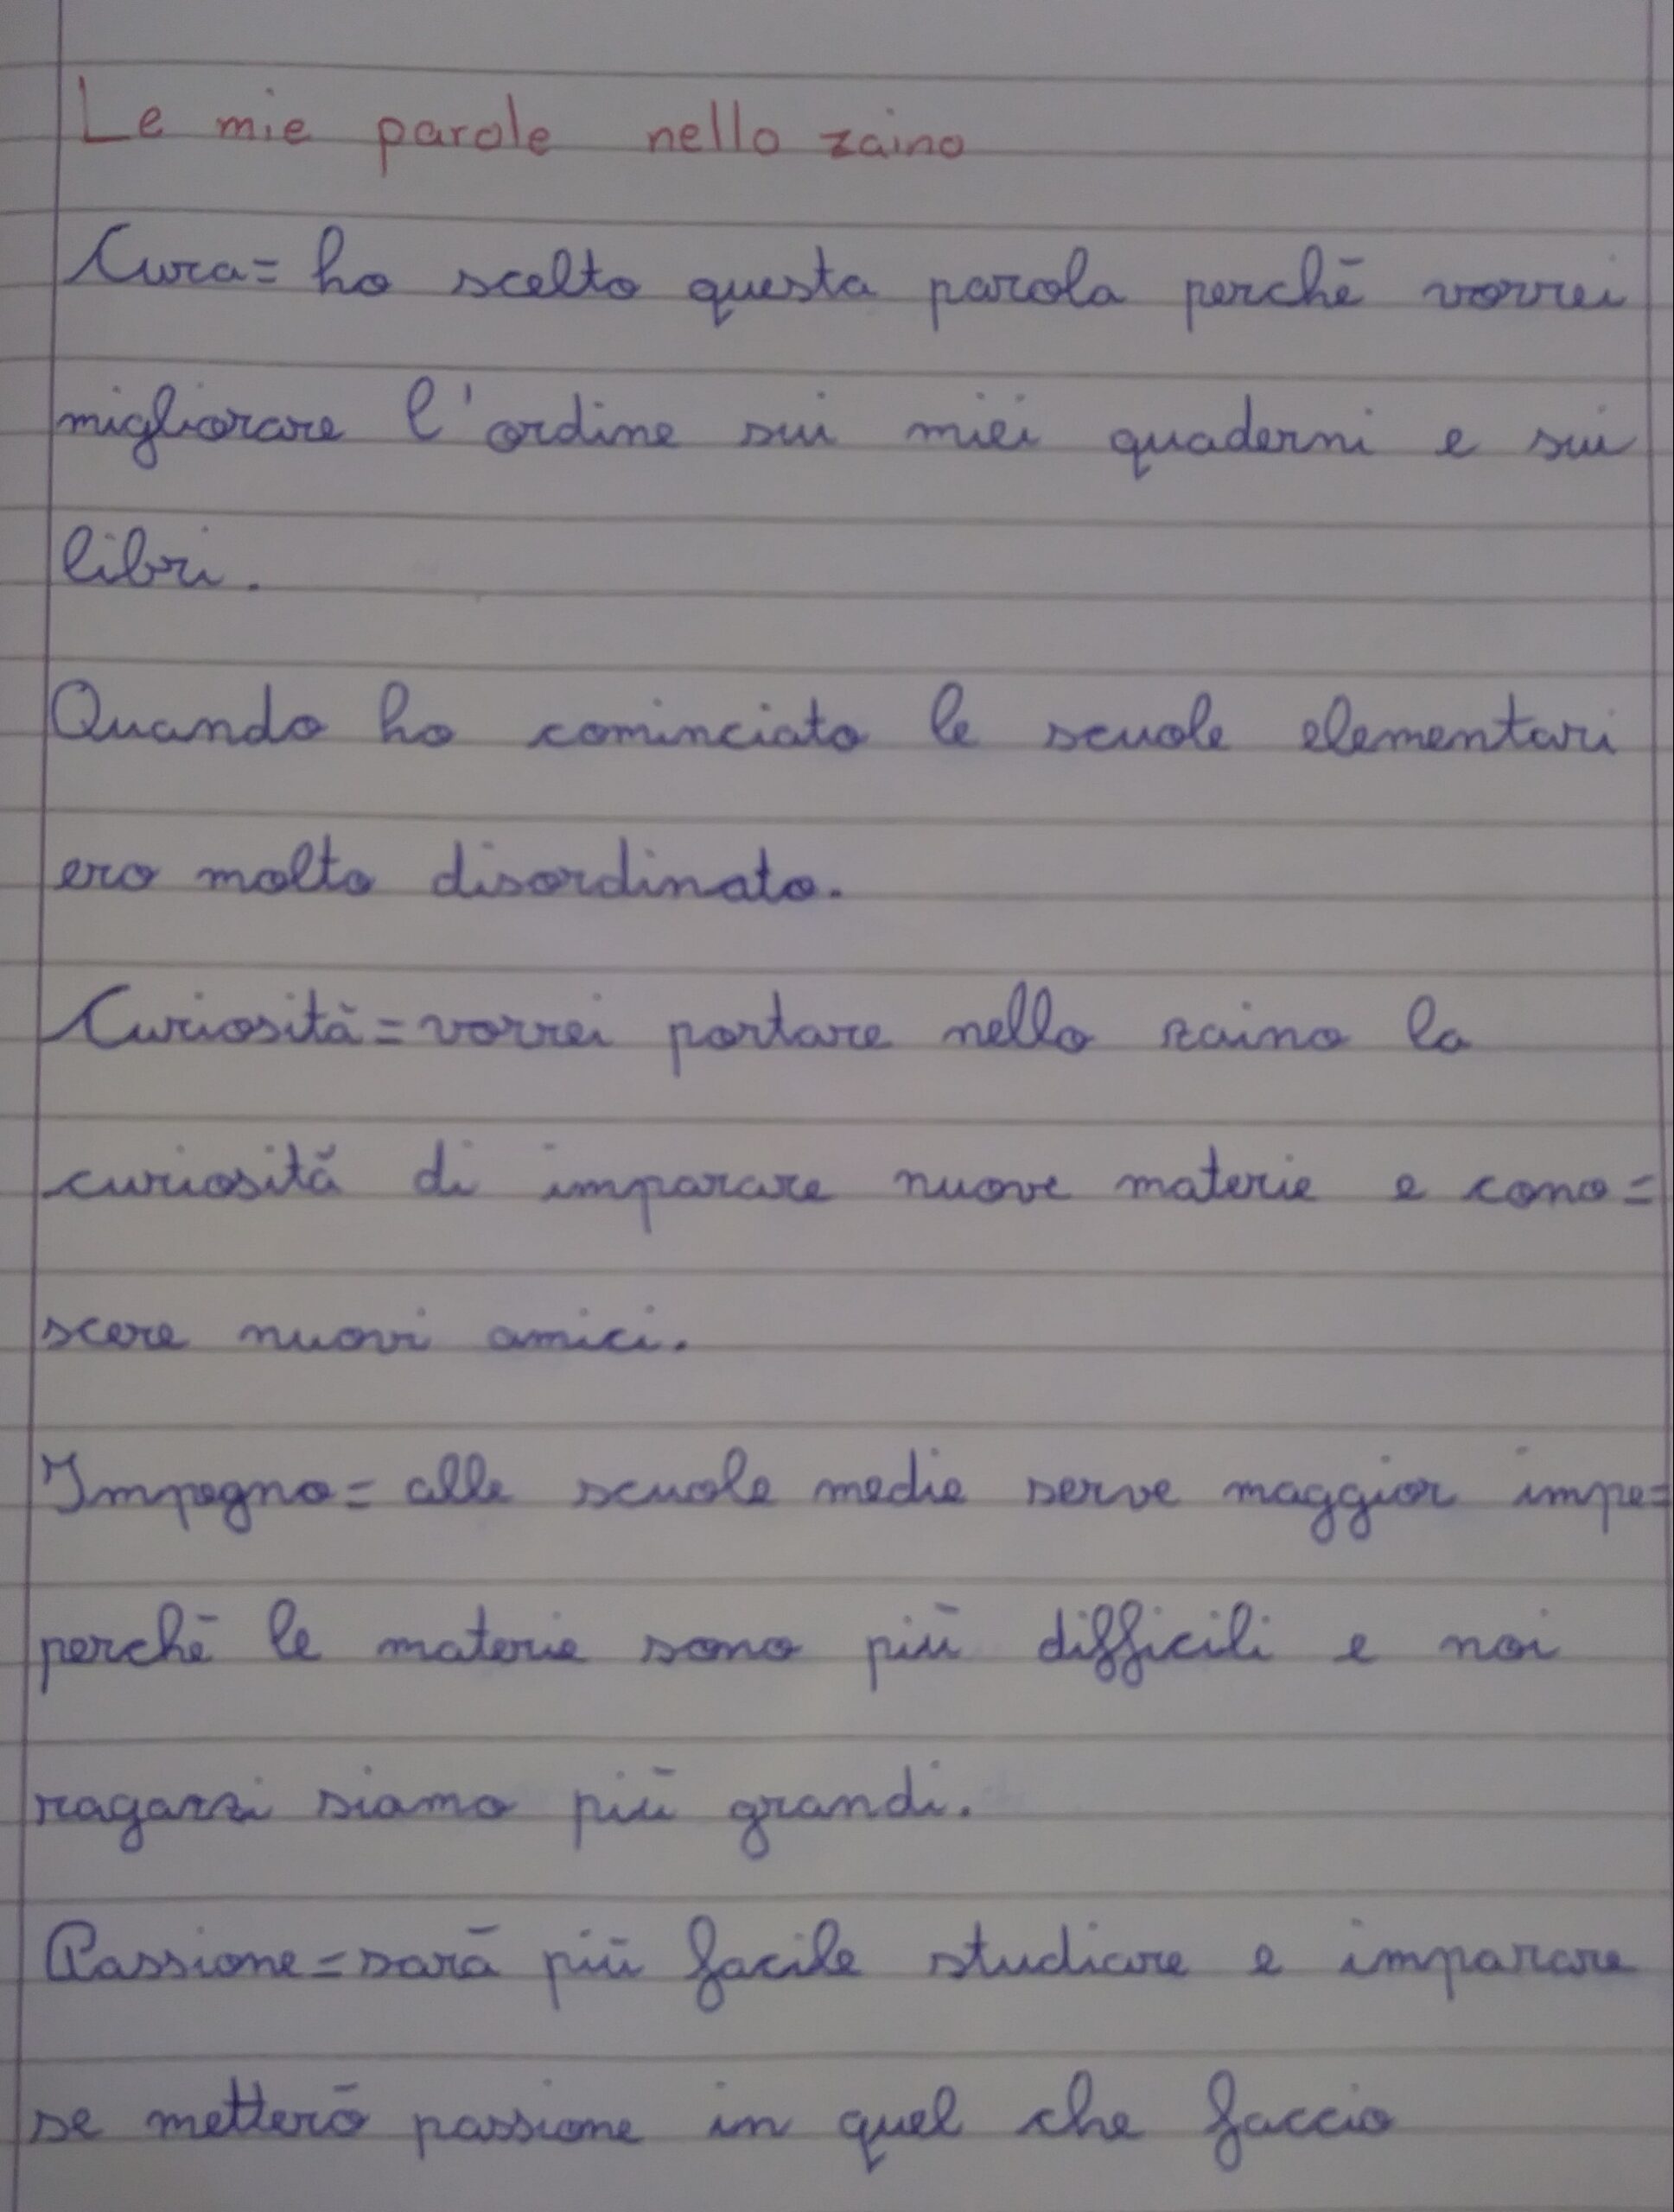 Le mie parole nello zaino
Cura= ho scelto questa parola perchē vorrei
migliorare l'ordine sui miei quaderni e sui
libri.
Quando ho cominciato le scuole elementari
ero molto disordinato.
Curiosità= vorrei portare nello zaino la
curiosità di imparare nuove materie e cono=
scere nuovi amici.
Impegno= alle scuole medie serve maggior impe=
perchē le materie sono più difficili e noi
ragazzi siamo più grandi.
Passione= sarā più facile studiare e imparare
se metterō passione in quel che faccio